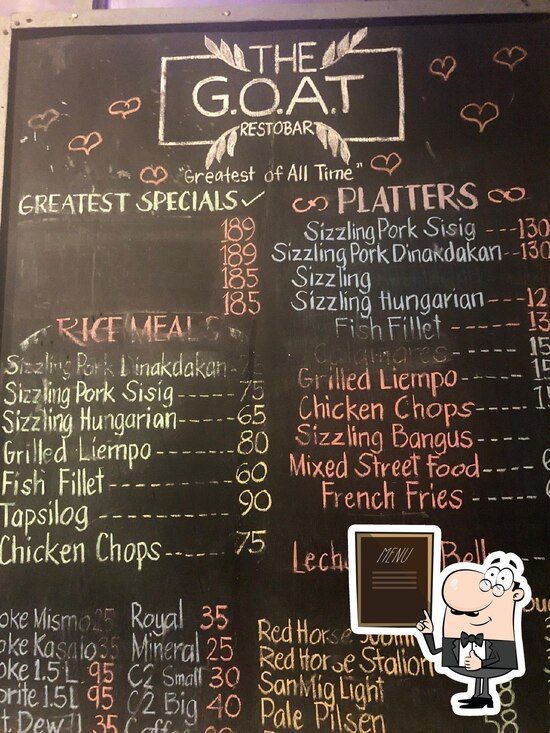 THE
G.O.A.T
RESTOBAR
"Greatest of All Time"
GREATEST SPECIALS ✓
189
189
185
185
RICE MEALS
Sizzling Pork Dinakdakan
Sizzling Pork Sisig --- 75
Sizzling Hungarian ---- 65
Grilled Liempo ------- 80
Fish Fillet -------- 60
Tapsilog -------- 90
Chicken Chops ------ 75
PLATTERS
Sizzling Pork Sisig --- 130
Sizzling Pork Dinakdakan -- 130
Sizzling
Sizzling Hungarian ---
Fish Fillet -----
Calamares
Grilled Liempo ----
Chicken Chops ---
Sizzling Bangus ----
Mixed Street Food ----
French Fries -----
MENU
oke Mismo 25
oke Kasalo 35
oke 1.5L 95
prite 1.5L 95
35
Royal 35
Mineral 25
C2 Small 30
C2 Big 40
Coffee
Red Horse
Red Horse Stallion
San Mig Light
Pale Pilsen